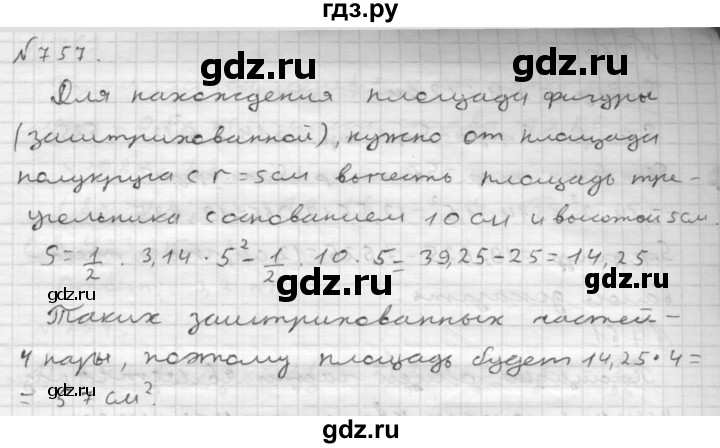 гдз.ру
№757.
gdz.ru gdz.ru
Для нахождения площади фигуры
(заштрихованной), нужно от площади
полукруга с r = 5 см вычесть площадь тре-
угольника с основанием 10 см и высотой 5 см.
S = 1/2 · 3,14 · 5² - 1/2 · 10 · 5 = 39,25 - 25 = 14,25
gdz.ru gdz.ru gdz.ru
Таких заштрихованных частей -
4 пары, поэтому площадь будет 14,25 · 4 =
= 57 см².
gdz.ru gdz.ru
gdz.ru